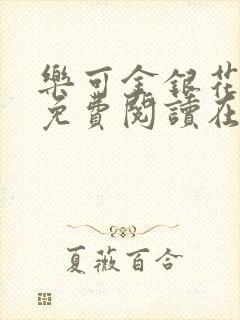 樂可金銀花
免費閱讀在
夏薇百合